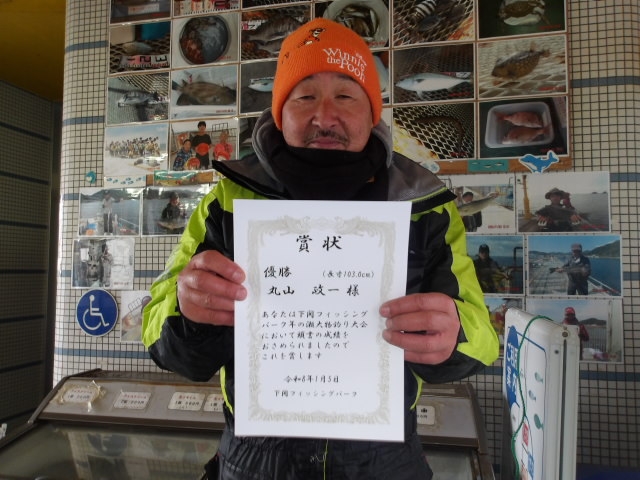 Winnie
the Pooh
賞状
優勝 (長寸103.0cm)
丸山 政一 様
あなたは下関フィッシング
パーク年の瀬大物釣り大会
において頭書の成績を
おさめられましたので
これを賞します
令和8年1月5日
下関フィッシングパーク